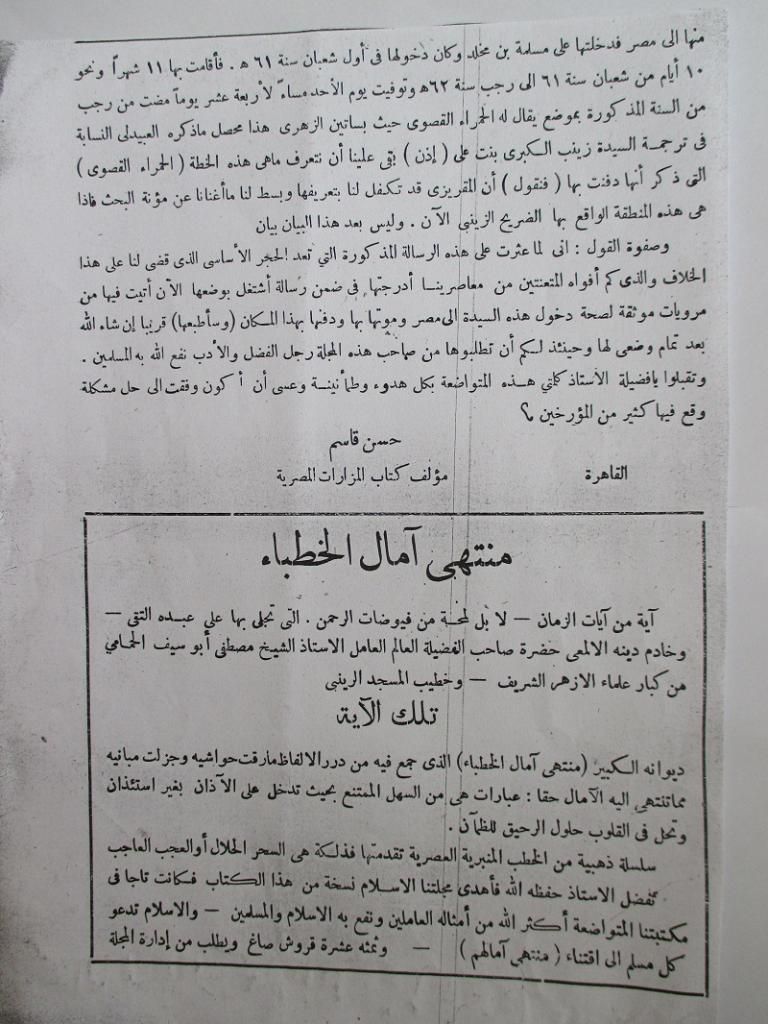 منها الى مصر فدخلتها على مسلمة بن مخلد وكان دخولها فى أول شعبان سنة ٦١ ه . فأقامت بها ١١ شهراً ونحو
١٠ أيام من شعبان سنة ٦١ الى رجب سنة ٦٢ه وتوفيت يوم الأحد مساءً لأربعة عشر يوماً مضت من رجب
من السنة المذكورة بموضع يقال له الحمراء القصوى حيث بساتين الزهرى هذا محصل ماذكره العبيدلى النسابة
فى ترجمـة السيدة زينب الكبرى بنت على ( إذن ) بقى علينا أن نتعرف ماهى هذه الخطة ( الحمراء القصوى )
التى ذكر أنها دفنت بها ( فنقول ) أن المقريزى قد تكفل لنا بتعريفها وبسط لنا ماأغنانا عن مؤنة البحث فاذا
هى هذه المنطقة الواقع بها الضريح الزينبى الآن . وليس بعد هذا البيان بيان
وصفوة القول : انى لما عثرت على هذه الرسالة المذكورة التي تعد الحجر الأساسى الذى قضى لنا على هذا
الخلاف والذى كم أفواه المتعنتين من معاصرينـا أدرجتها فى ضمن رسالة أشتغل بوضعها الآن أتيت فيها من
مرويات موثقة لصحة دخول هذه السيدة الى مصر وموتها بها ودفنها بهذا المكان (وسأطبعها) قريبا إن شاء الله
بعد تمام وضعى لها وحينئذ لكم أن تطلبوها من صاحب هذه المجلة رجل الفضل والأدب نفع الله به المسلمين .
وتقبلوا يافضيلة الأستاذ كلمتي هـذه المتواضعة بكل هدوء وطمأنينـة وعسى أن أكون وفقت الى حل مشكلة
وقع فيها كثير من المؤرخين ؟
حسن قاسم
القاهرة مؤلف كتاب المزارات المصرية
منتهى آمال الخطباء
آية من آيات الزمان — لا بل لمحـة من فيوضات الرحمن . التى تجلى بها على عبـده التقى —
وخادم دينه الالمعى حضرة صاحب الفضيلة العالم العامل الاستاذ الشيخ مصطفى أبو سيف الحمامي
من كبار علماء الازهر الشريف — وخطيب المسجد الزينبى
تلك الآية
ديوانه الكبير (منتهى آمال الخطباء) الذى جمع فيه من درر الالفاظ مارقت حواشيه وجزلت مبانيه
مماتنتهى اليه الآمال حقا : عبارات هى من السهل الممتنع بحيث تدخل على الآذان بغير استئذان
وتحل فى القلوب حلول الرحيق للظمآن .
سلسلة ذهبية من الخطب المنبرية العصرية تقدمتها فذلكة هى السحر الحلال أوالعجب العاجب
تفضل الاستاذ حفظه الله فأهدى مجلتنا الاسلام نسخة من هذا الكتاب فكانت تاجا فى
مكتبتنا المتواضعة أكثر الله من أمثاله العاملين ونفع به الاسلام والمسلمين — والاسلام تدعو
كل مسلم الى اقتناء ( منتهى آمالهم ) — وثمنه عشرة قروش صاغ ويطلب من إدارة المجلة